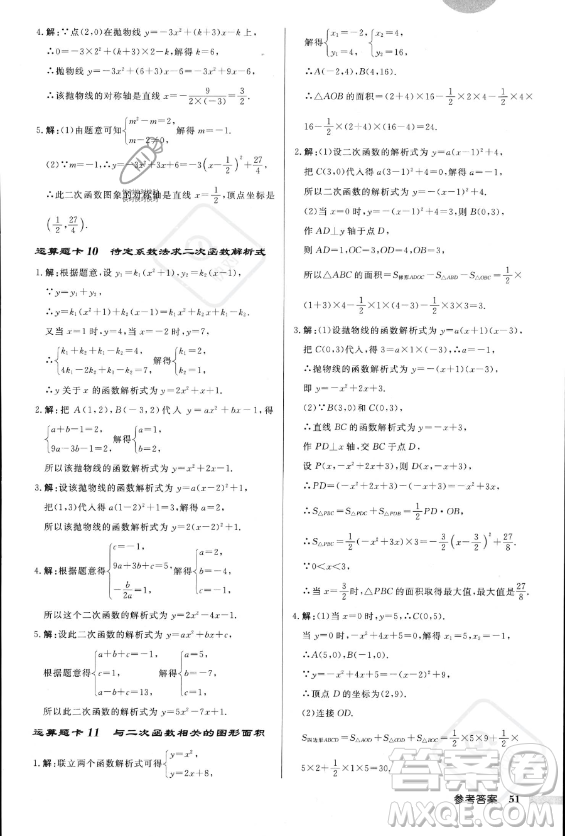 4.解:∵点(2,0)在抛物线 y=-3x²+(k+3)x-k 上,
∴0=-3×2²+(k+3)×2-k,∴k=6,
∴抛物线为 y=-3x²+(6+3)x-6=-3x²+9x-6,
∴该抛物线的对称轴是直线 x=-9/(2×(-3))=3/2.
5.解:(1)由题意可知{m²-m=2, m-2≠0,
∴此二次函数图象的对称轴是直线 x=1/2,顶点坐标是
(1/2,27/4).
运算题卡 10 待定系数法求二次函数解析式
1.解:根据题意,设 y₁=k₁(x²+1),y₂=
∴y=k₁(x²+1)+k₂(x-2)=k₁x²+k₂x+k₁-2k₂.
又当 x=1 时,y=4,当
∴{k₁+k₂+k₁-2k₂=4, 解得{k₁=2,
∴y 关于 x 的函数解析式为 y=2x²+x+1.
2.解:把 A(1,2),B(-3,2)代入 y=ax²+bx-1,得
{a+b-1=2, 9a-3b-1=2, 解得{a=1, b=2,
所以该抛物线的函数解析式为 y=x²+2x-1.
3.解:设该抛物线的函数解析式为 y=a(x-2)²+1.
把(1,3)代入,得 3=a(1-2)²+1,解得 a=2,
所以该抛物线的函数解析式为 y=2(x-2)²+1.
4.解:根据题意得{c=-1, 9a+3b+c=5, -b/2a=1, 解得{
所以这个二次函数的解析式为 y=2x²-4x-1.
5.解:设此二次函数的解析式为 y=ax²+bx+c,
根据题意得{a+b+c=-1, c=1, a-b+c=13, 解得{a=5, b=-7, c=1,
所以此二次函数的解析式为 y=5x²-7x+1.
运算题卡 11 与二次函数相关的图形面积
1.解:联立两个函数解析式可得{y=x², y=2x+8,
解得{x₁=-2, y₁=4, {x₂=4, y₂=16,
∴A(-2,4),B(4,16).
∴△AOB 的面积=(2+4)×16-1/2×2×4-1/2×4×
16-1/2×(4+2)×(16-4)=24.
2.解:(1)设二次函数的解析式为 y=a(x-1)²+4,
把 C(3,0)代入,得 0=a(3-1)²+4,解得 a=-1.
所以二次函数的解析式为 y=-(x-1)²+4.
(2)当 x=0 时,y=-(0-1)²+4=3,
作 AD⊥y 轴于点 D,
所以△ABC 的面积=S梯形ADOC-S△ABD-S△BOC=1/2×
(1+3)×4-1/2×1×1-1/2×3×3=3.
3.解:(1)设抛物线的函数解析式为 y=a(x+1)(x-3).
把 C(0,3)代入,得 3=a×1×(-3),解得 a=-1,
∴抛物线的函数解析式为 y=-(x+1)(x-3),
即 y=-x²+2x+3.
(2)∵B(3,0),C(0,3),
∴直线 BC 的函数解析式为 y=-x+3.
作 PD⊥x 轴,交 BC 于点 D,
设 P(x,-x²+2x+3),则 D(x,-x+3),
∴PD=-x²+2x+3-(-x+3)=-x²+3x,
∴S△PBC=S△PDC+S△PDB=1/2PD·OB,
∴S△PBC=1/2×(-x²+3x)×3=-3/2(x-3/2)²+27/8.
∵0<x<3,
∴当 x=3/2 时,△PBC 的面积取得最大值,最大值为27/8.
4.解:(1)当 x=0 时,y=5,∴C(0,5).
∴A(5,0),B(-1,0).
∵y=-x²+4x+5=-(x-2)²+9,
∴顶点 D 的坐标为(2,9).
(2)连接 OD.
S四边形ABCD=S△AOD+S△COD+S△BOC=1/2×5×9+1/2
×5×2+1/2×1×5=30.
参考答案 51